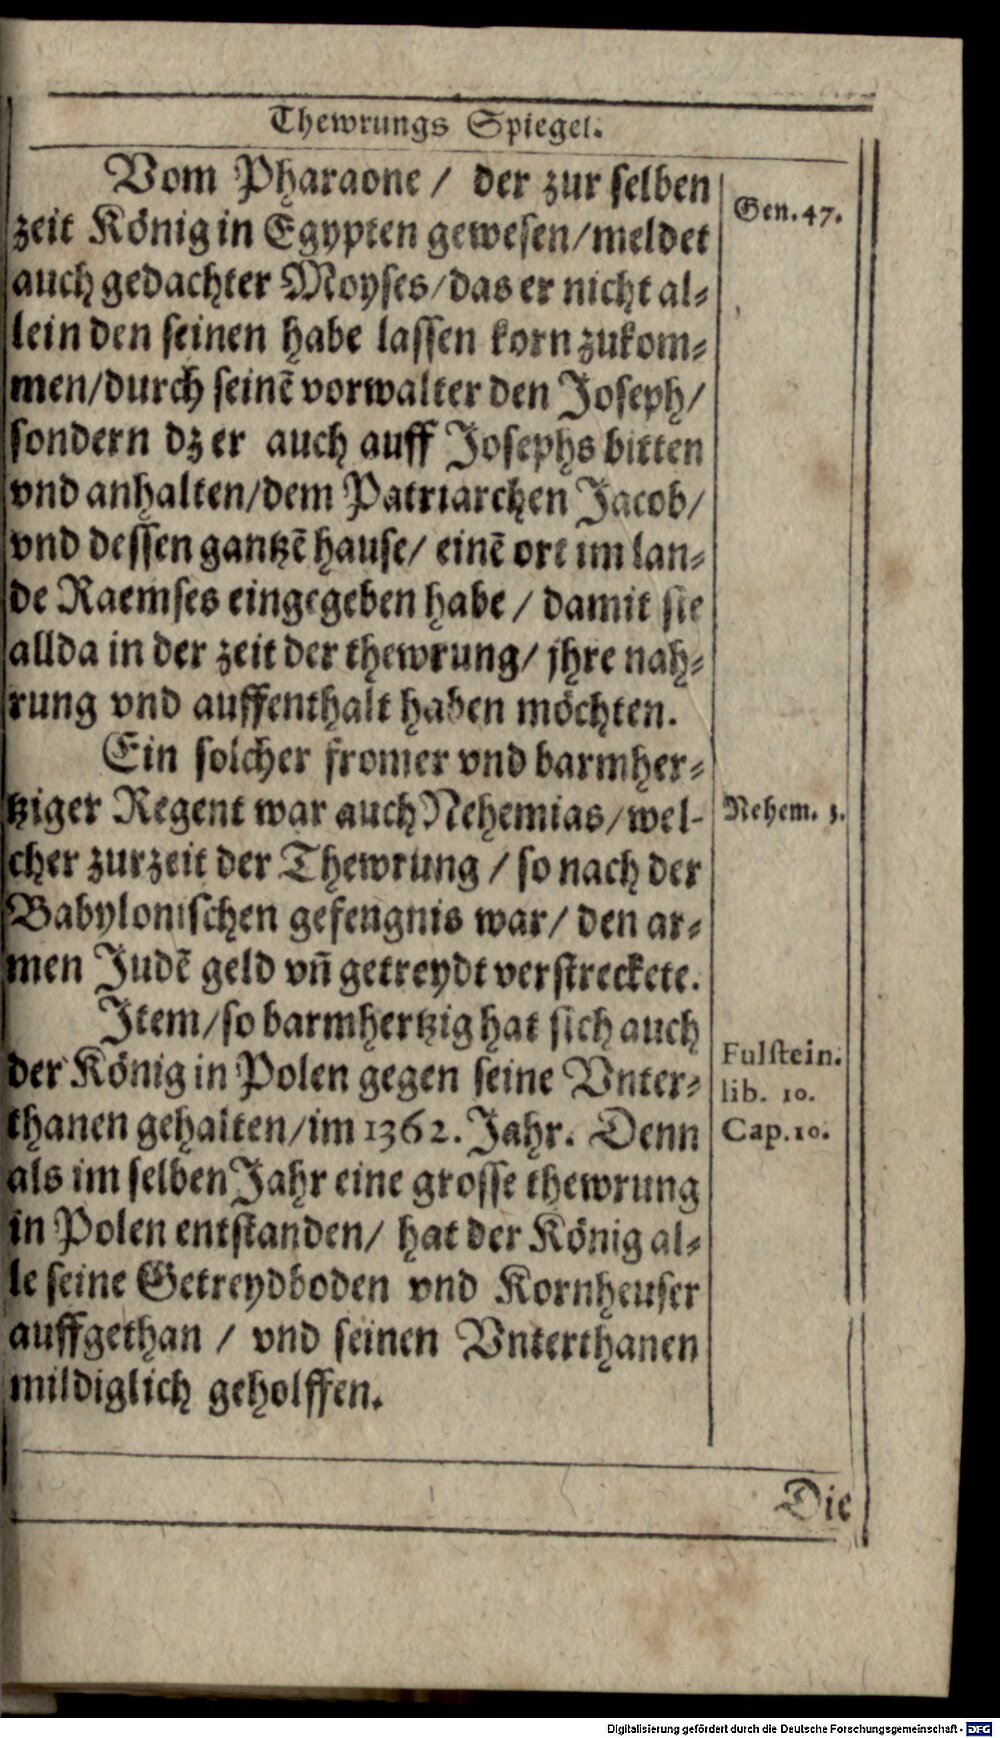 Thewrungs Spiegel.
Vom Pharaone / der zur selben
zeit König in Egypten gewesen/meldet
auch gedachter Moyses/das er nicht al-
lein den seinen habe lassen korn zukom-
men/durch seinē vorwalter den Joseph/
sondern dz er auch auff Josephs bitten
vnd anhalten/dem Patriarchen Jacob/
vnd dessen gantzē hause/ einē ort im lan-
de Raemses eingegeben habe / damit sie
allda in der zeit der thewrung/ jhre nah-
rung vnd auffenthalt haben möchten.
Gen. 47.
Ein solcher fromer vnd barmher-
tziger Regent war auch Nehemias/wel-
cher zur zeit der Thewrung / so nach der
Babylonischen gefengnis war/ den ar-
men Judē geld vn̄ getreydt verstreckete.
Nehem. 5.
Item/so barmhertzig hat sich auch
der König in Polen gegen seine Vnter-
thanen gehalten/im 1362. Jahr. Denn
als im selben Jahr eine grosse thewrung
in Polen entstanden/ hat der König al-
le seine Getreydboden vnd Kornheuser
auffgethan / vnd seinen Vnterthanen
mildiglich geholffen.
Fulstein.
lib. 10.
Cap. 10.
Die
Digitalisierung gefördert durch die Deutsche Forschungsgemeinschaft - DFG